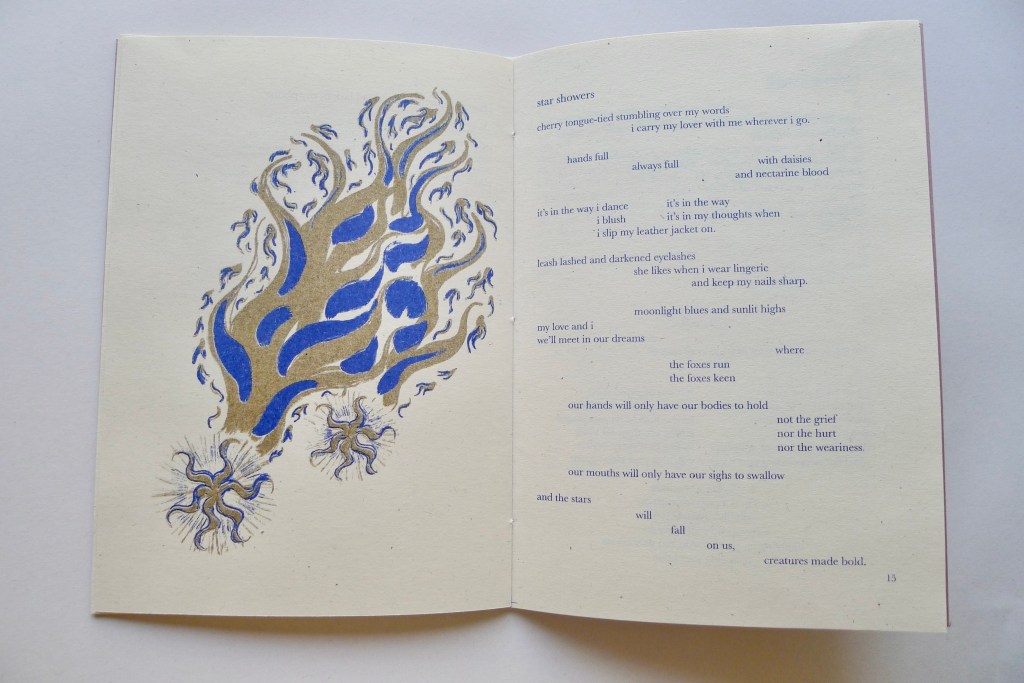 star showers
cherry tongue-tied stumbling over my words
i carry my lover with me wherever i go.
hands full always full with daisies
and nectarine blood
it's in the way i dance it's in the way
i blush it's in my thoughts when
i slip my leather jacket on.
leash lashed and darkened eyelashes
she likes when i wear lingerie
and keep my nails sharp.
moonlight blues and sunlit highs
my love and i
we'll meet in our dreams
where
the foxes run
the foxes keen
our hands will only have our bodies to hold
not the grief
nor the hurt
nor the weariness.
our mouths will only have our sighs to swallow
and the stars
will
fall
on us,
creatures made bold.
15